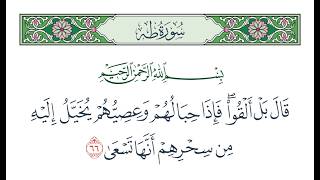 سُورَةُ طٰهٰ
بِسْمِ اللَّهِ الرَّحْمَٰنِ الرَّحِيمِ
قَالَ بَلْ أَلْقُوا۟ ۖ فَإِذَا حِبَالُهُمْ وَعِصِيُّهُمْ يُخَيَّلُ إِلَيْهِ
مِن سِحْرِهِمْ أَنَّهَا تَسْعَىٰ ٦٦